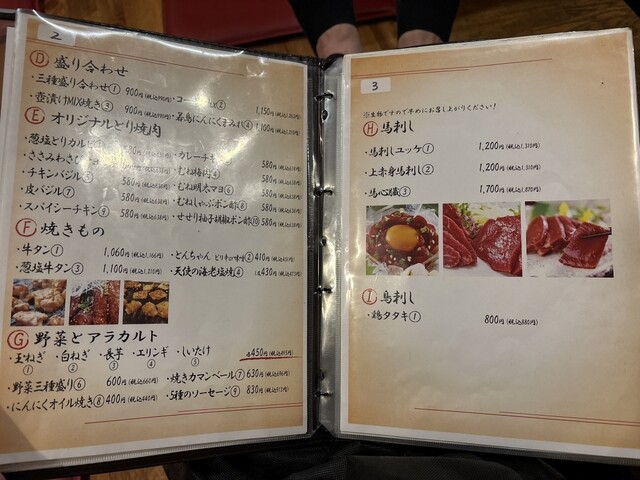 2
Ⓓ 盛り合わせ
・三種盛り合わせ① 900円(税込990円) ② 1,150円
・壺漬けMIX焼き③ 900円(税込990円) ・若鳥にんにくまみれ④ 1,100円
Ⓔ オリジナルとり焼肉
・葱塩とりカルビ ・カレーチキン 580円
・ささみわさび ・むね梅肉④ 580円
・チキンバジル⑤ 580円 ・むね明太マヨ⑥ 580円
・皮バジル⑦ 580円 ・むねしゃぶポン酢⑧ 580円
・スパイシーチキン⑨ 580円 ・せせり柚子胡椒ポン酢⑩ 580円
Ⓕ 焼きもの
・牛タン① 1,060円(税込1,166円) ・とんちゃん ピリ辛の味噌② 410円(税込451円)
・葱塩牛タン③ 1,100円(税込1,210円) ・天使の海老塩焼④ 430円(税込473円)
Ⓖ 野菜とアラカルト
・玉ねぎ ・白ねぎ ・長芋 ・エリンギ ・しいたけ 各450円(税込495円)
① ② ③ ④ ⑤
・野菜三種盛り⑥ 600円(税込660円) ・焼きカマンベール⑦ 630円(税込693円)
・にんにくオイル焼き⑧ 400円(税込440円) ・5種のソーセージ⑨ 830円(税込913円)
3
※生物ですので早めにお召し上がりください!
Ⓗ 馬刺し
・馬刺しユッケ① 1,200円(税込1,320円)
・上赤身馬刺し② 1,200円(税込1,320円)
・馬心臓③ 1,700円(税込1,870円)
Ⓘ 鳥刺し
・鶏タタキ① 800円(税込880円)